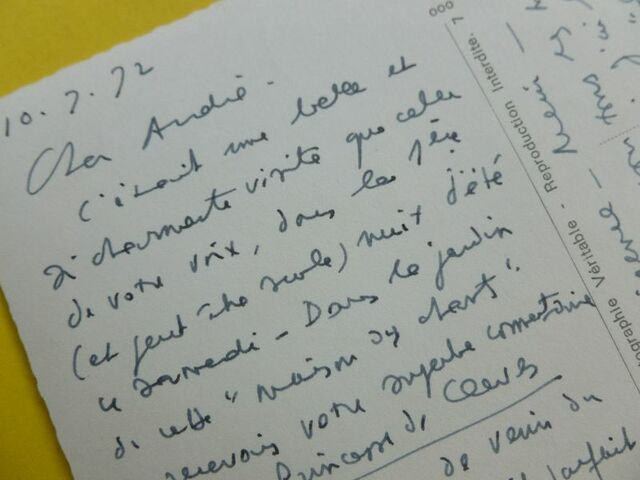 10.7.72
Cher André.
C'était une belle et
si charmante visite que celle
de votre voix, dans la 1ère
(et peut être seule) nuit d'été
ce samedi - Dans le jardin
de cette "maison des chats".
recevois votre superbe commentaire
Princesse de Clèves
de venir du
parfait
ographie Véritable - Reproduction Interdite. 7 000